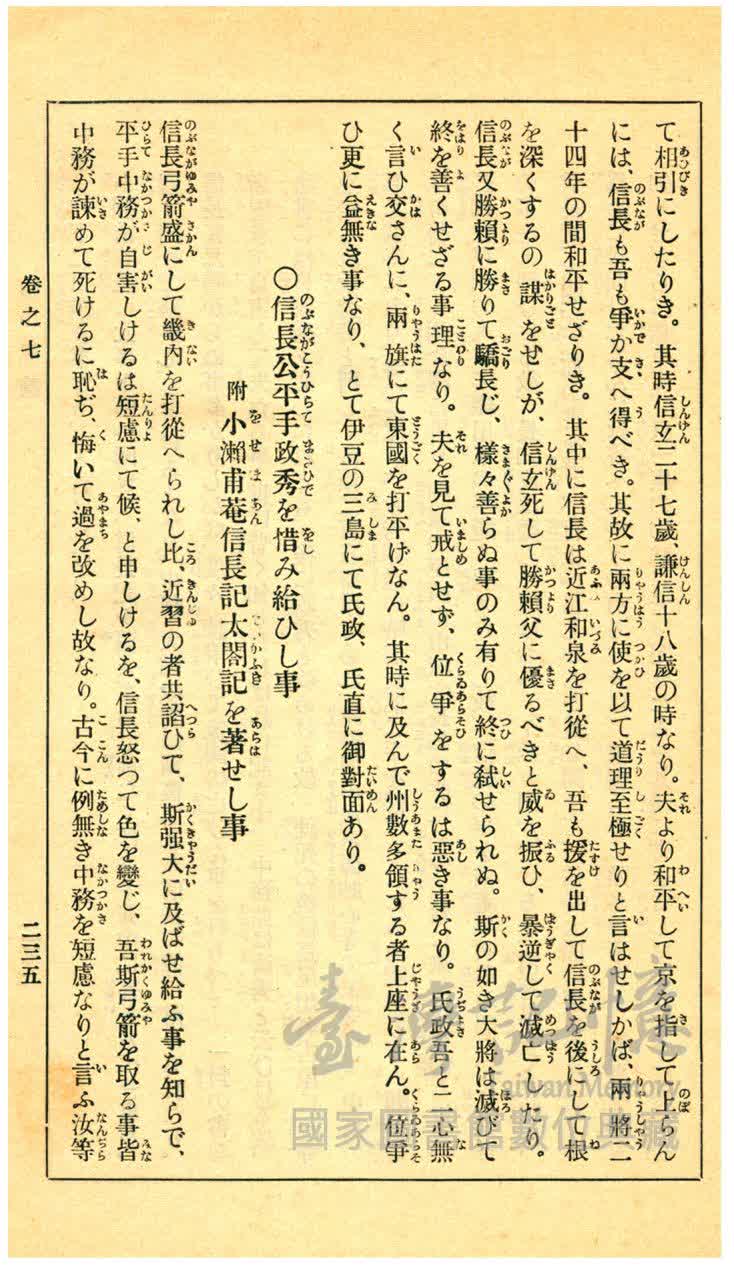 て相引にしたりき。其時信玄二十七歲、謙信十八歲の時なり。夫より和平して京を指して上らん
には、信長も吾も爭か支へ得べき。其故に兩方に使を以て道理至極せりと言はせしかば、兩將二
十四年の間和平せざりき。其中に信長は近江和泉を打從へ、吾も援を出して信長を後にして根
を深くするの謀をせしが、信玄死して勝賴父に優るべきと威を振ひ、暴逆して滅亡したり。
信長又勝賴に勝りて驕長じ、樣々善らぬ事のみ有りて終に弑せられぬ。斯の如き大將は滅びて
終を善くせざる事理なり。夫を見て戒とせず、位爭をするは惡き事なり。氏政吾と二心無
く言ひ交さんに、兩旗にて東國を打平げなん。其時に及んで州數多領する者上座に在ん。位爭
ひ更に益無き事なり、とて伊豆の三島にて氏政、氏直に御對面あり。
〇信長公平手政秀を惜み給ひし事
附 小瀨甫菴信長記太閤記を著せし事
信長弓箭盛にして畿內を打從へられし比、近習の者共諂ひて、斯强大に及ばせ給ふ事を知らで、
平手中務が自害しけるは短慮にて候、と申しけるを、信長怒つて色を變じ、吾斯弓箭を取る事皆
中務が諫めて死けるに恥ぢ、悔いて過を改めし故なり。古今に例無き中務を短慮なりと言ふ汝等
卷之七
二三五
臺灣記憶
Taiwan Memory
國家圖書館數位典藏